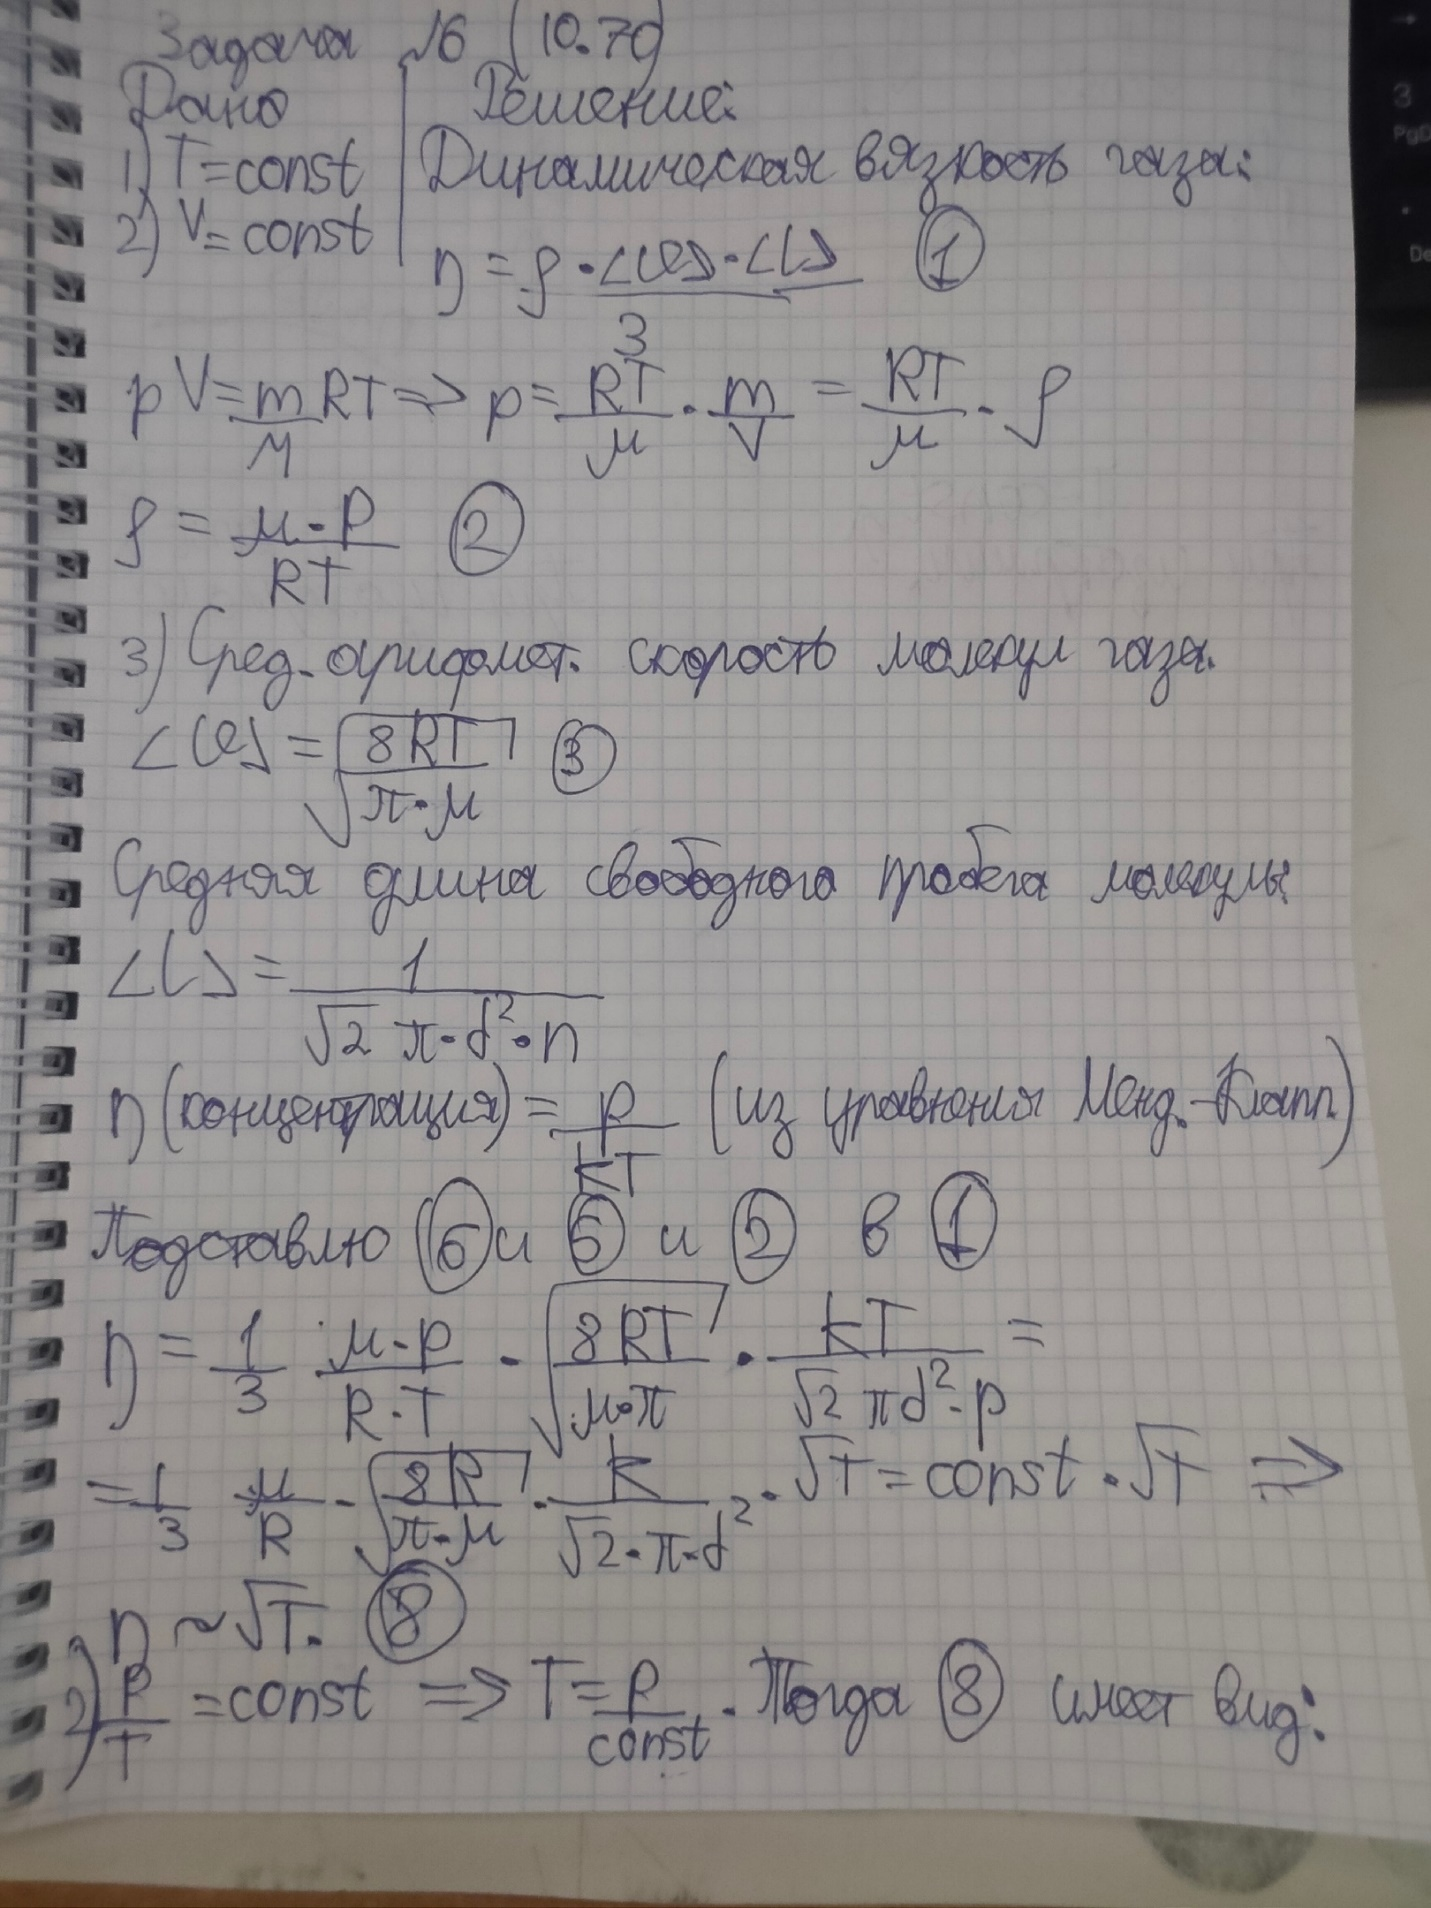 Задача №6 (10.70)
Дано Решение:
1) T = const Динамическая вязкость газа:
2) V = const
η = ρ·<υ>·<l> / 3 ①
pV = m/M RT => p = RT/μ · m/V = RT/μ · ρ
ρ = μ·p / RT ②
3) Сред. арифмет. скорость молекул газа.
<υ> = √(8RT / π·μ) ③
Средняя длина свободного пробега молекулы:
<l> = 1 / √2 π·d²·n
n (концентрация) = p / kT (из уравнения Менд.-Клапп)
Подставлю ⑥ и ⑤ и ② в ①
η = 1/3 μ·p / R·T · √(8RT / μ·π) · kT / √2 πd²·p =
= 1/3 μ/R · √(8R / π·μ) · k / √2·π·d² · √T = const · √T =>
η ~ √T. ⑧
2) P/T = const => T = P/const. Тогда ⑧ имеет вид:
3
PgD
De